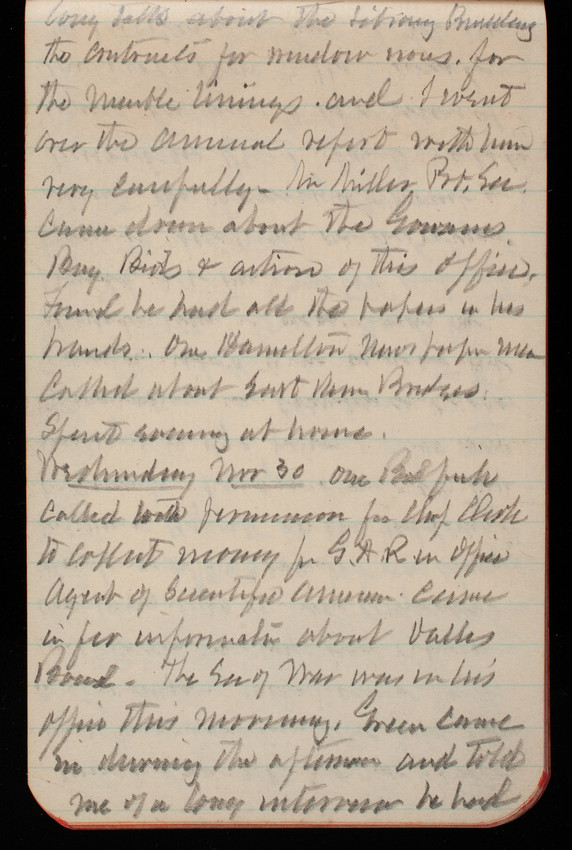 long talk about the Library Building
the contracts for window  for
the marble linings. and I went
over the annual report with him
very carefully - Mr Miller, Pvt. Sec.
came down about the Gowanus
Bay Bids & action of this office.
Found he had all the papers in his
hands. One Hamilton Newspaper man
called about East River Bridges.
Spent evening at home.
Wednesday Nov 30 One
called with permission from Chief Clerk
to collect money for G.A.R in Office
Agent of Scientific American came
in for information about
. The Sec of War was in his
office this morning. Green came
in during the afternoon and told
me of a long interview he had